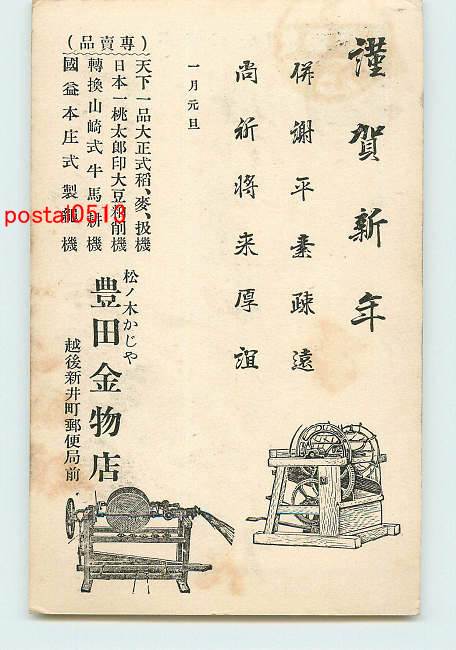 謹賀新年
併謝平素疎遠
尚祈将来厚誼
一月元旦
(専賣品)
天下一品大正式稻、麥、扱機
日本一桃太郎印大豆粕削機
轉換山崎式牛馬耕機
國益本庄式製繩機
松ノ木かじや
豊田金物店
越後新井町郵便局前
postal0513